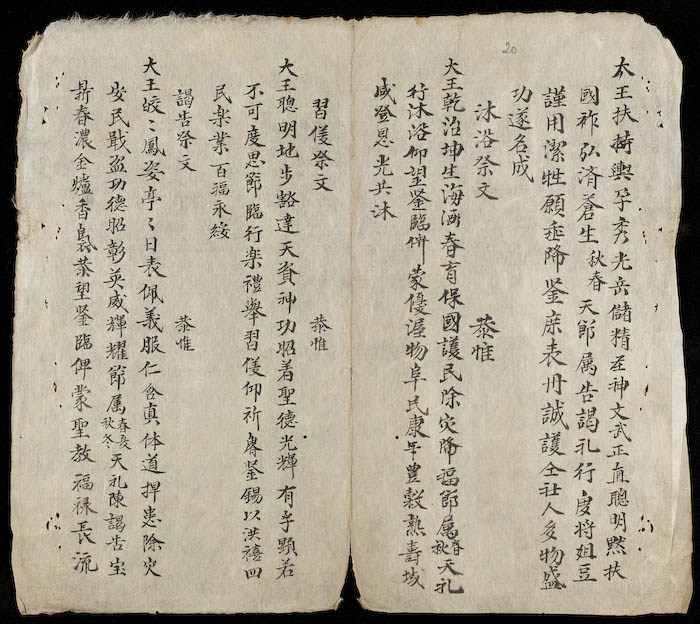 20
大王扶輿孕秀光岳儲精至神文武正直聰明黙扶
國祚弘済蒼生秋春天節属告謁礼行度将俎豆
謹用潔牲願垂降鉴庶表丹誠護仝社人多物盛
功遂名成
沐浴祭文 恭惟
大王乾治坤生海涵春育保國護民除灾降福節属春秋天礼
行沐浴仰望鉴臨俾蒙優渥物阜民康年豊穀熟壽域
咸登恩光共沐
習儀祭文 恭惟
大王聰明地步豁達天資神功昭着聖德光輝有孚顒若
不可度思節臨行楽禮舉習儀仰祈睿鉴錫以洪禧四
民楽業百福永綏
謁告祭文 恭惟
大王皎〻鳳姿亭〻日表佩義服仁含真体道捍患除灾
安民戢盗功德昭彰英威輝耀節属春夏秋冬天礼陳謁告宝
鼎春濃金爐香裊恭望鉴臨俾蒙聖教福禄長流